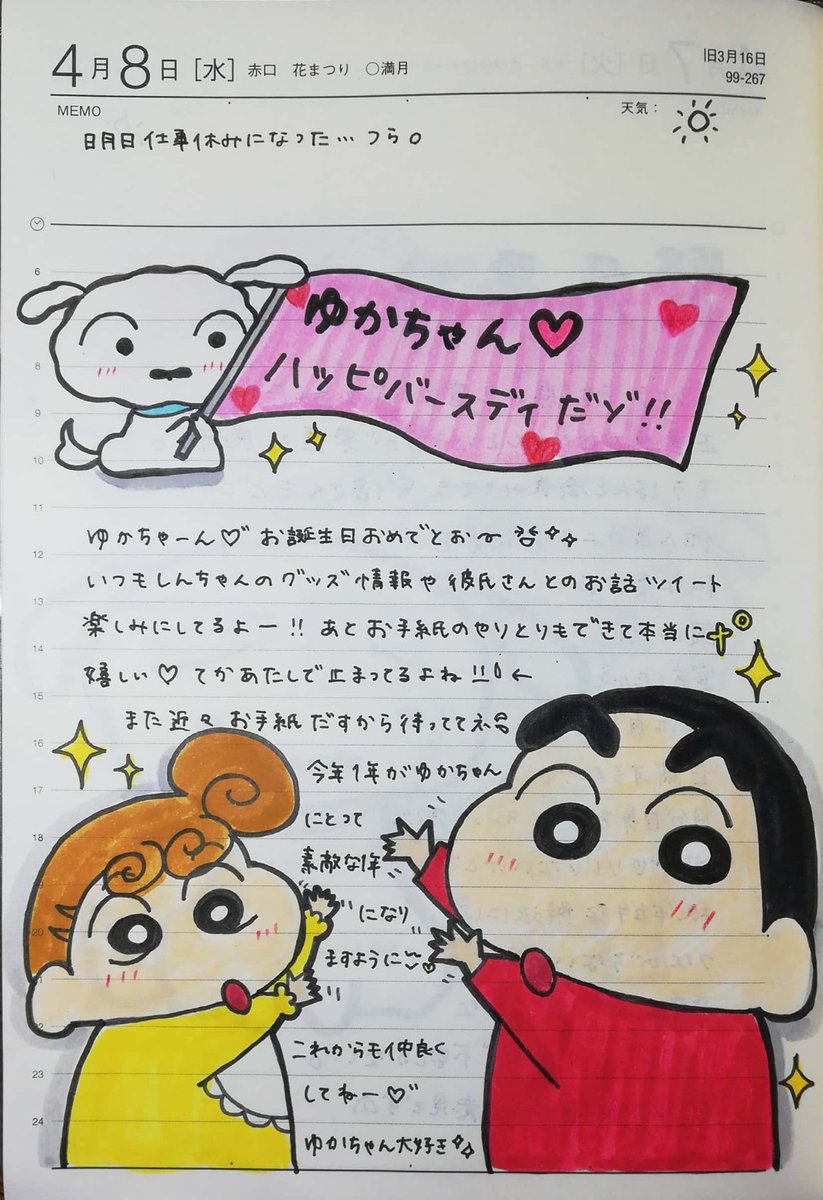 4月8日[水] 赤口 花まつり ○満月
旧3月16日
99-267
MEMO
天気:
明日仕事休みになった…つら。
6
8
9
10
11
12
13
14
15
16
17
18
20
23
24
ゆかちゃん♡
ハッピバースディだゾ!!
ゆかちゃーん♡お誕生日おめでとお〜
いつもしんちゃんのグッズ情報や彼氏さんとのお話ツイート
楽しみにしてるよー!!あとお手紙のやりとりもできて本当に
嬉しい♡てかあたしで止まってるよね!!←
また近々お手紙だすから待っててネ
今年1年がゆかちゃん
にとって
素敵な1年
になり
ますように
これからモ仲良く
してねー♡
ゆかちゃん大好き